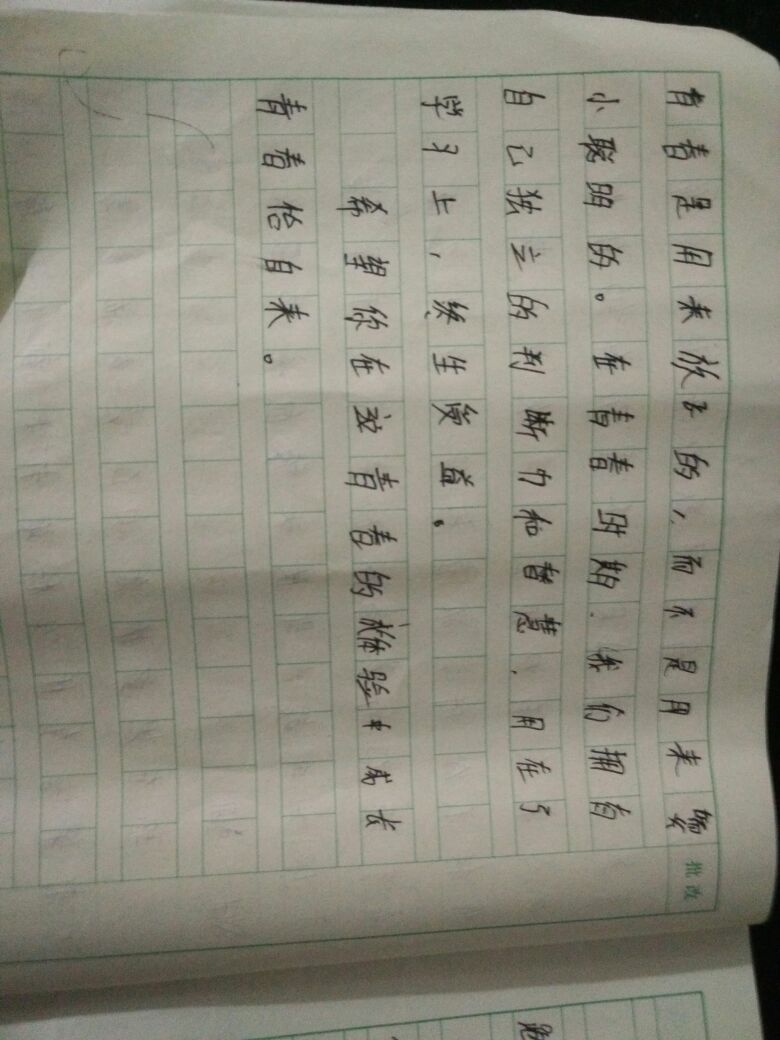 青春是用来放飞的，而不是用来耍
小聪明的。在青春时期，我们拥有
自己独立的判断力和智慧，用在了
学习上，终生受益。
希望你在这青春的体验中成长
青春恰自来。
批改